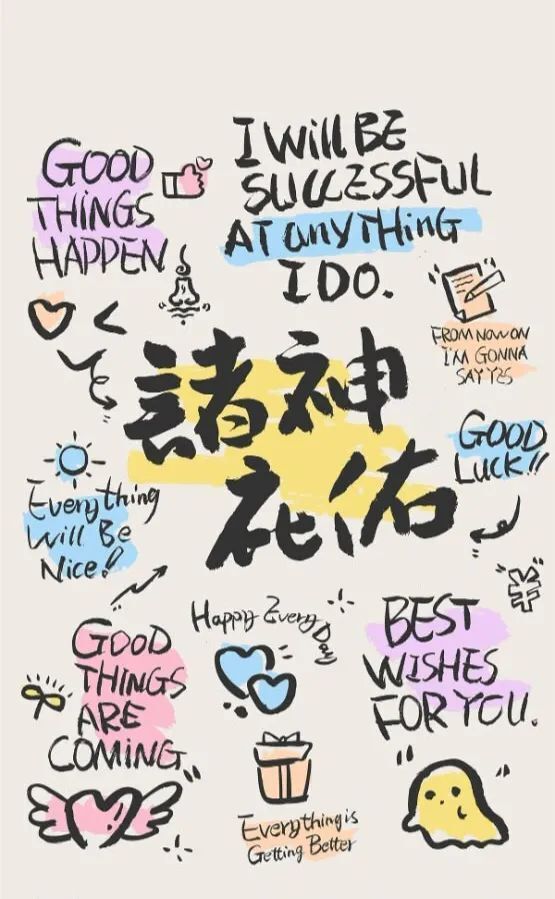 GOOD
THINGS
HAPPEN
I Will BE
SUCCESSFUL
AT anyTHinG
I DO.
FROM NOW ON
I'M GONNA
SAY YES
諸神
花佑
GOOD
LUCK!!
Everything
Will Be
Nice!
Happy Every Day
¥
GOOD
THINGS
ARE
COMING
BEST
WISHES
FOR YOU.
Everything is
Getting Better